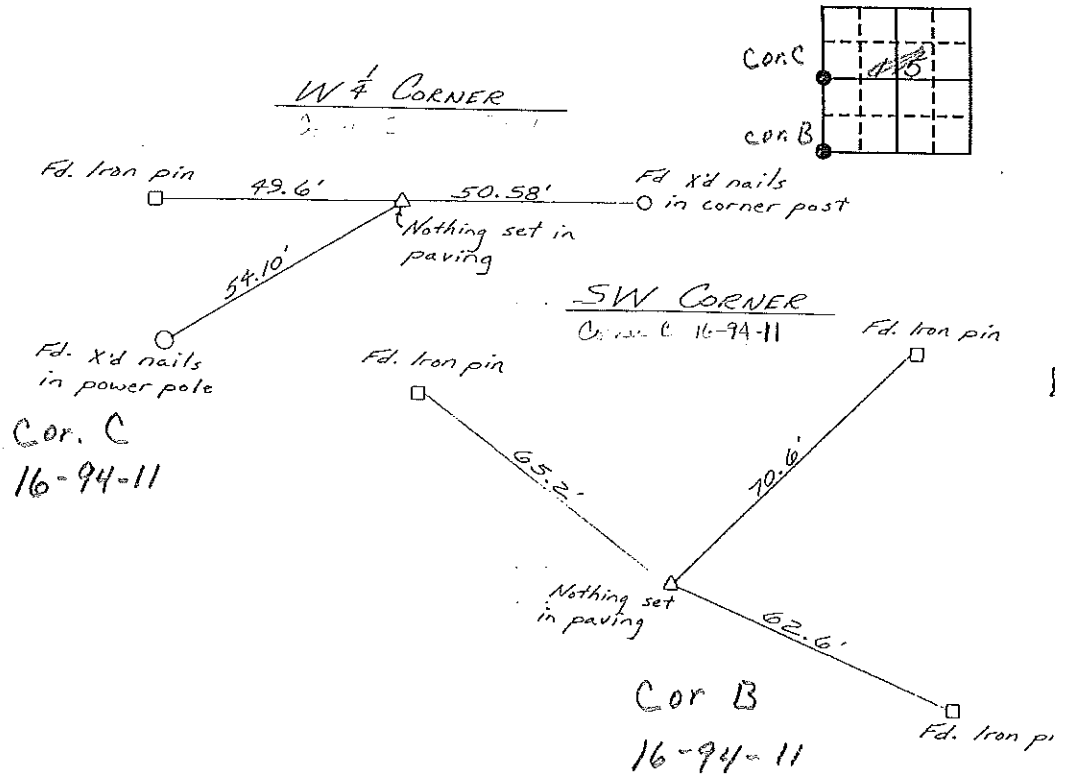 Cor. C
cor. B
W 1/4 CORNER
Fd. Iron pin
49.6'
50.58'
Fd X'd nails
in corner post
Nothing set in
paving
54.10'
Fd. X'd nails
in power pole
Cor. C
16-94-11
SW CORNER
C 16-94-11
Fd. Iron pin
Fd. Iron pin
65.2'
70.6'
Nothing set
in paving
62.6'
Fd. Iron
Cor B
16-94-11